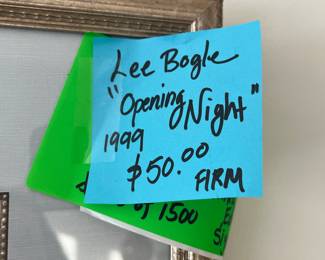 Lee Bogle
"Opening Night"
1999
$50.00
FIRM
of 1500